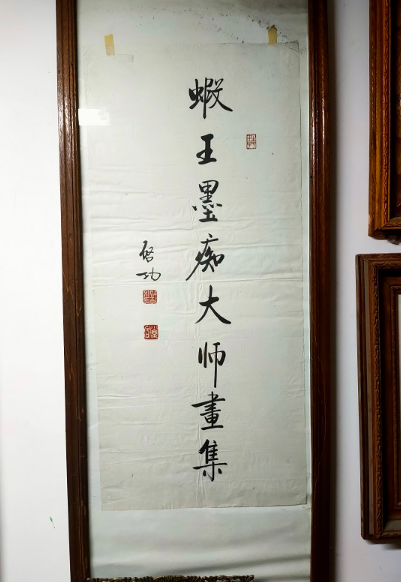 蝦王墨痴大师畫集
启功